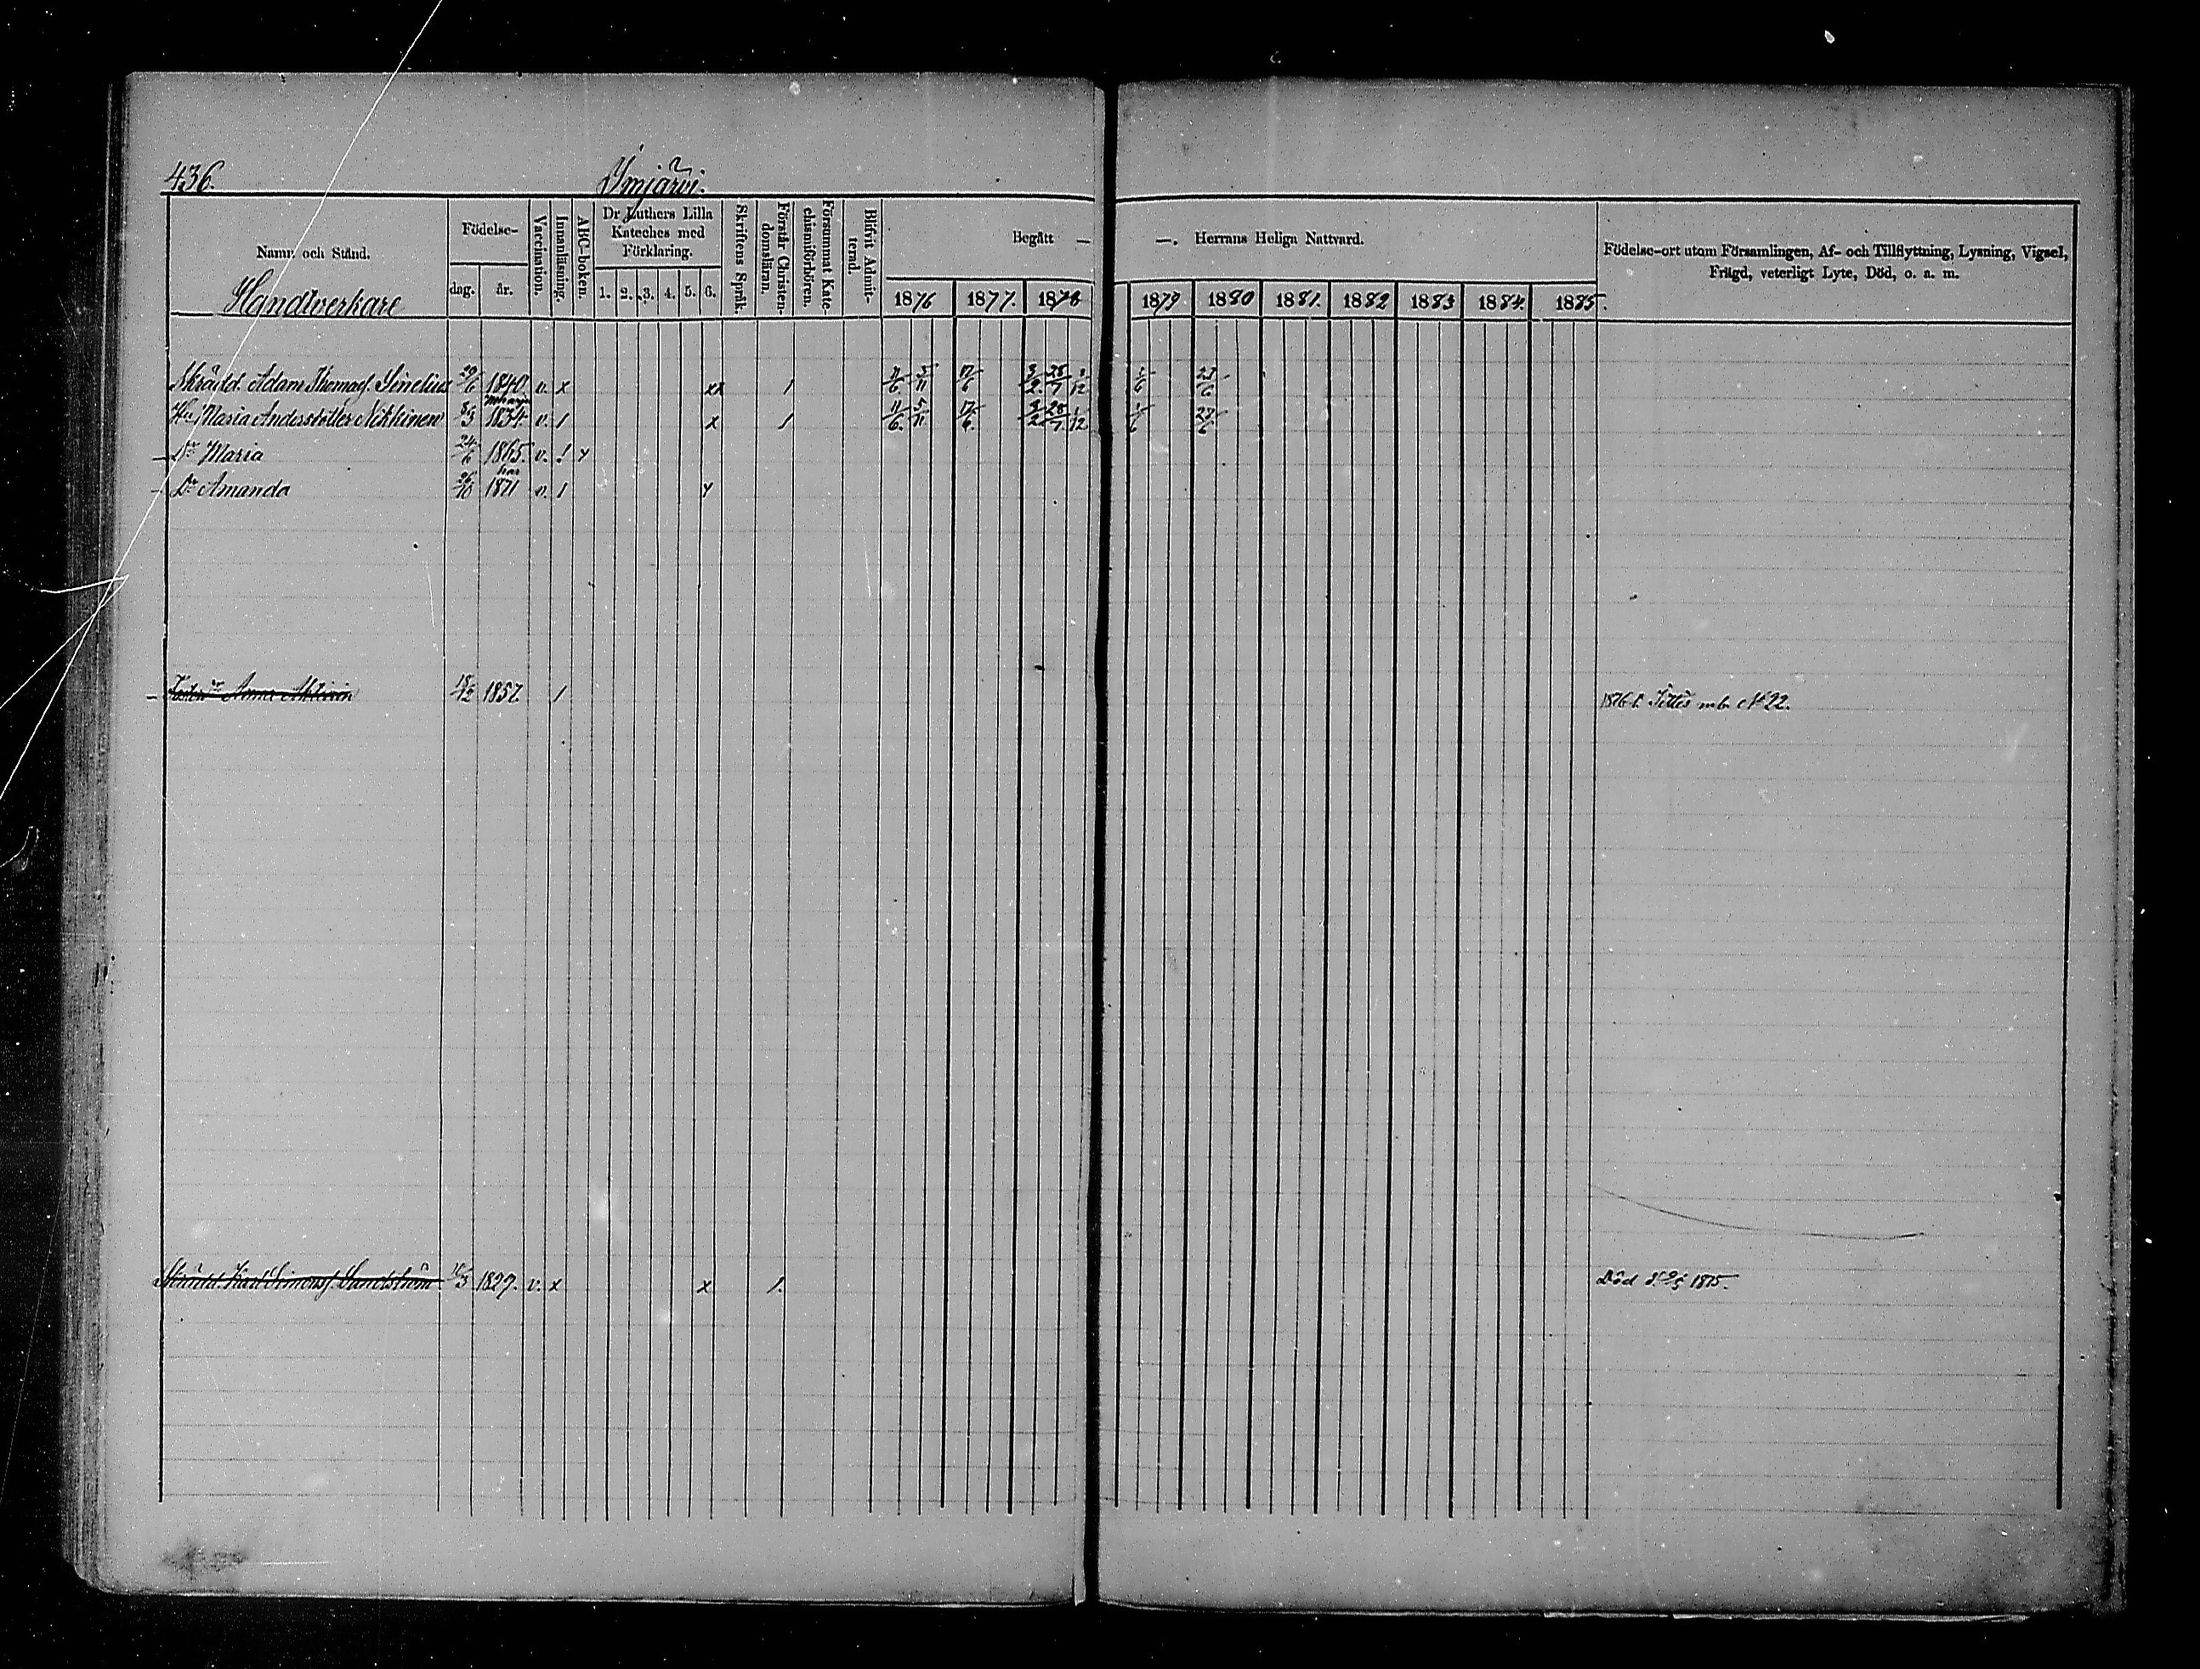 436.
Imjärvi.
Namn och Stånd.
Födelse-
dag.
år.
Vaccination.
Innanläsning.
ABC-boken.
Dr Luthers Lilla Kateches med Förklaring.
1. 2. 3. 4. 5. 6.
Skriftens Språk.
Förstår Christendomsläran.
Försummat Katechismiförhören.
Blifvit Admitterad.
Begått — —. Herrans Heliga Nattvard.
1876 1877. 1878 1879 1880 1881. 1882 1883 1884. 1885.
Födelse-ort utom Församlingen, Af- och Tillflyttning, Lysning, Vigsel,
Frägd, veterligt Lyte, Död, o. a. m.
Handtverkare
Skrädd. Adam Thomasf. Sinelius 20/6 1840. v. x xx 1 11/6 5/11 17/6 3/2 28/7 1/12 1/6 27/6
Hu, Maria Andersdotter Nikkinen 1834. v. 1 x 1 11/6. 5/11 17/6. 3/2 28/7 1/12 1/6 27/6
Dr Maria 24/6 1865. v.
Dr Amanda 26/10 1871 v. 1
Anna 1857. 1 1876 No 22.
Skrädd. Karl Simonsf. Sandström 1827. v. x x 1. Död 1875.